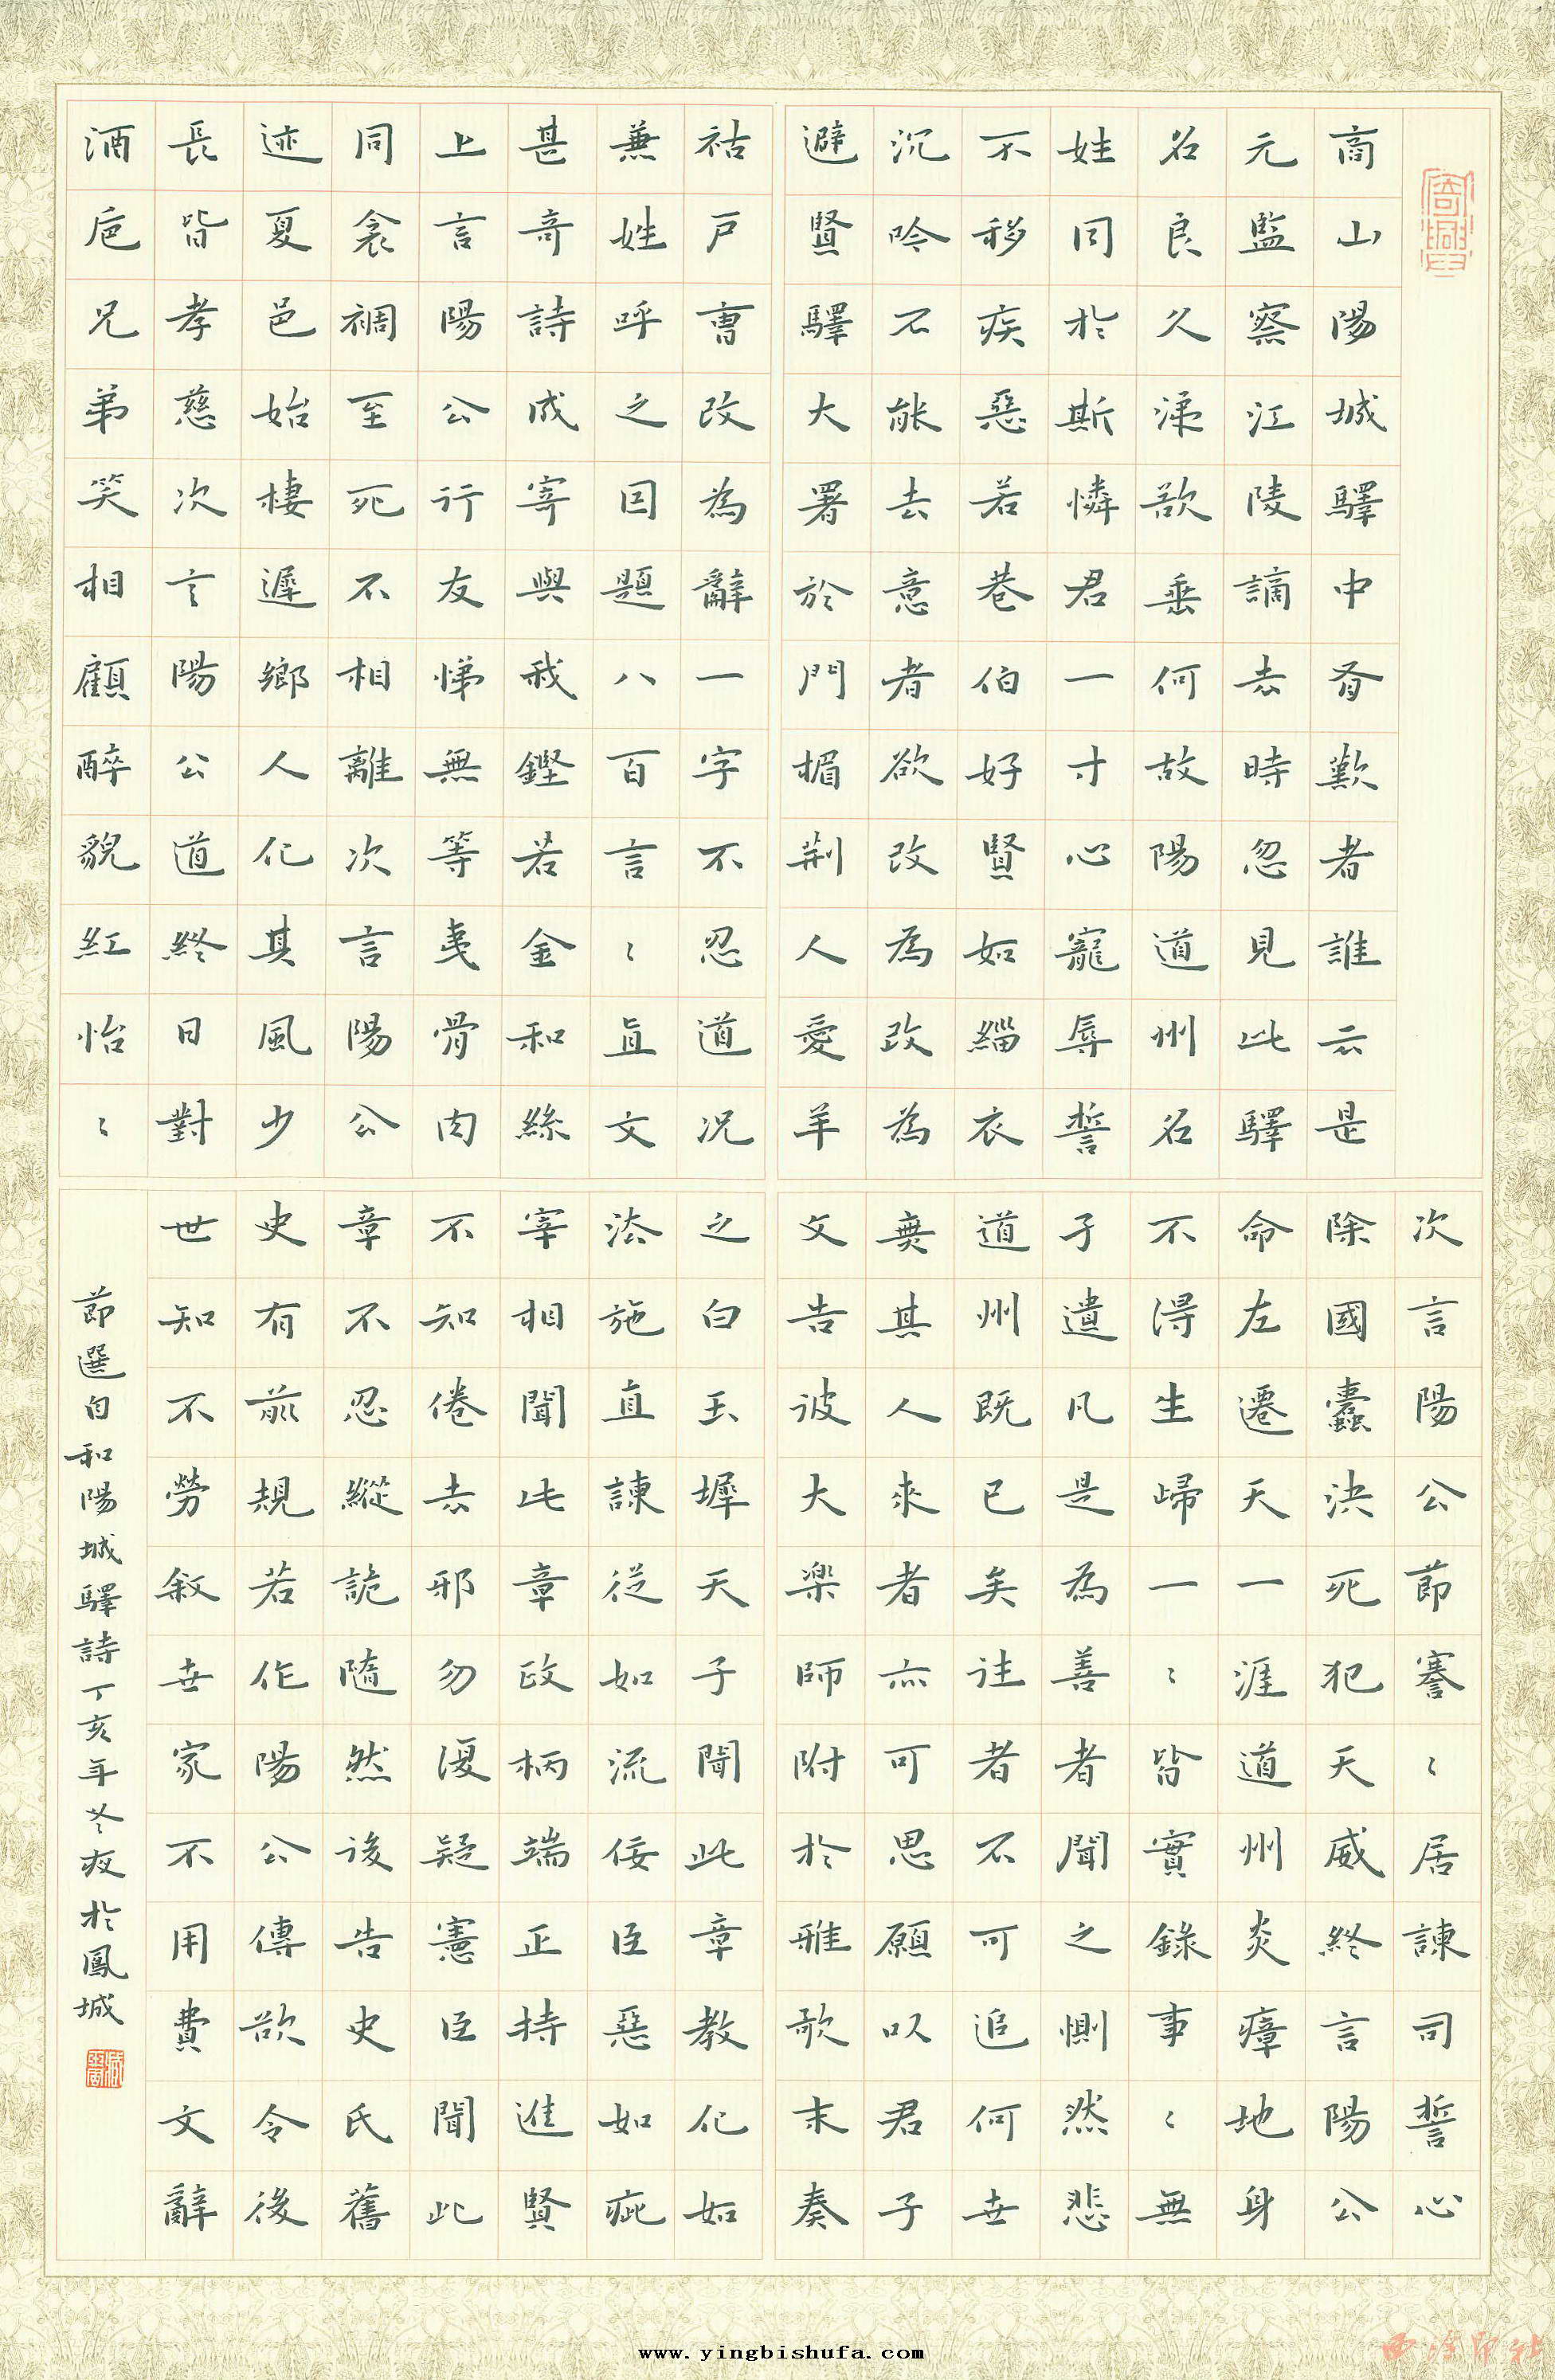 商山陽城驛中有歎者誰云是
元監察江陵謫去時忽見此驛
名良久涕欲垂何故陽道州名
姓同於斯憐君一寸心寵辱誓
不移疾惡若巷伯好賢如緇衣
沉吟不能去意者欲改為改為
避賢驛大署於門楣荆人愛羊
祜戶曹改為辭一字不忍道況
兼姓呼之因題八百言〻直文
甚奇詩成寄與我鏗若金和絲
上言陽公行友悌無等夷骨肉
同衾裯至死不相離次言陽公
迹夏邑始棲遲鄉人化其風少
長皆孝慈次言陽公道終日對
酒卮兄弟笑相顧醉貌紅怡〻
次言陽公節謇〻居諫司誓心
除國蠹決死犯天威終言陽公
命左遷天一涯道州炎瘴地身
不得生歸一〻皆實錄事〻無
孑遺凡是為善者聞之惻然悲
道州既已矣往者不可追何世
無其人來者亦可思願以君子
文告彼大樂師附於雅歌末奏
之白玉墀天子聞此章教化如
法施直諫從如流佞臣惡如疵
宰相聞此章政柄端正持進賢
不知倦去邪勿復疑憲臣聞此
章不忍縱詭隨然後告史氏舊
史有前規若作陽公傳欲令後
世知不勞敘世家不用費文辭
節選自和陽城驛詩丁亥年冬夜於鳳城
www.yingbishufa.com